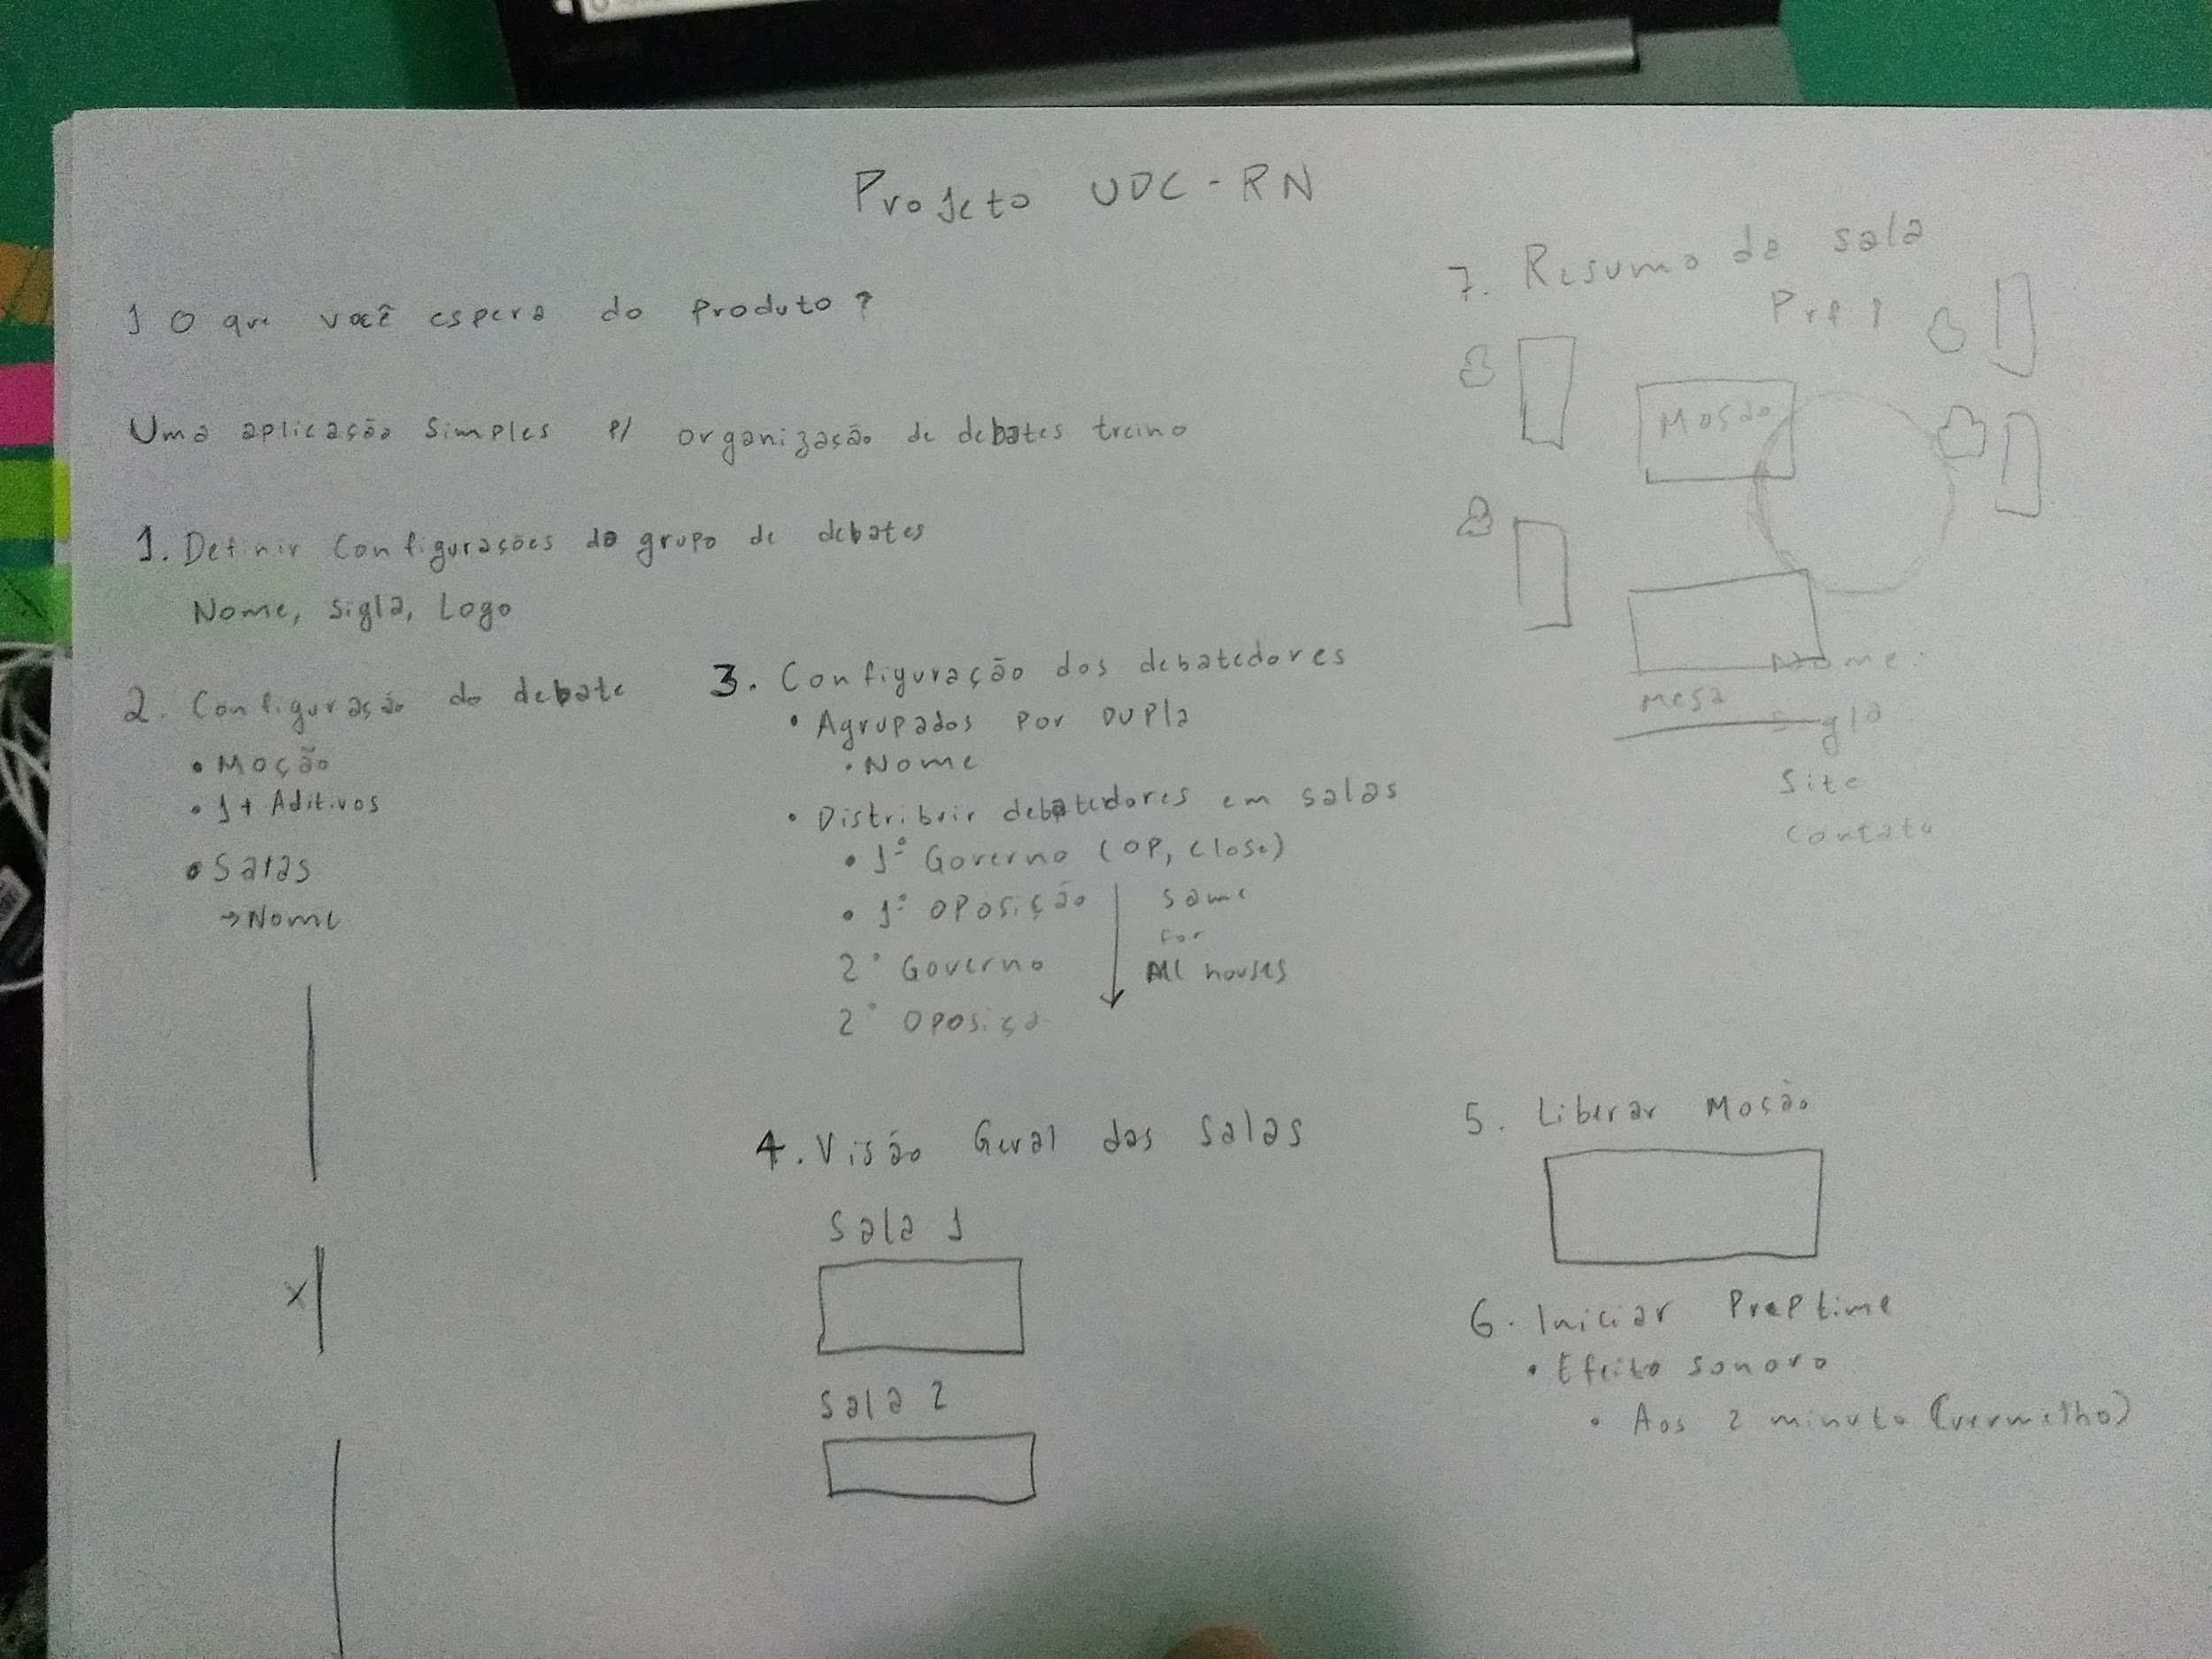 Projeto UDC-RN
1 O que você espera do produto?
Uma aplicação simples p/ organização de debates treino
1. Definir configurações do grupo de debates
Nome, sigla, Logo
2. Configuração do debate
• Moção
• 1+ Aditivos
• Salas
→ Nome
X
3. Configuração dos debatedores
• Agrupados por DUPLA
• Nome
• Distribuir debatedores em salas
• 1º Governo (OP, close)
• 1º Oposição
2º Governo
2º Oposiçã
same
for
All houses
4. Visão Geral das salas
Sala 1
Sala 2
5. Liberar Moção
6. Iniciar Preptime
• Efeito sonoro
• Aos 2 minuto (vermelho)
7. Resumo da sala
Moção
Mesa
Nome:
Sigla
Site
Contato